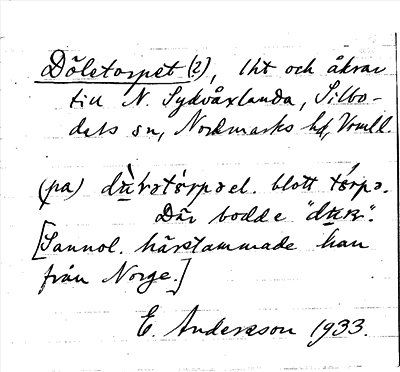 Döletorpet (?), lht och åkrar
till N. Sydvåxlanda, Silbo-
dals sn, Nordmarks hd, Vrmll.
(på) dù̀ɽətɷ́rpə el. blott tɷ́rpə.
Där bodde "duɽn".
[Sannol. härstammade han
från Norge.]
E. Andersson 1933.